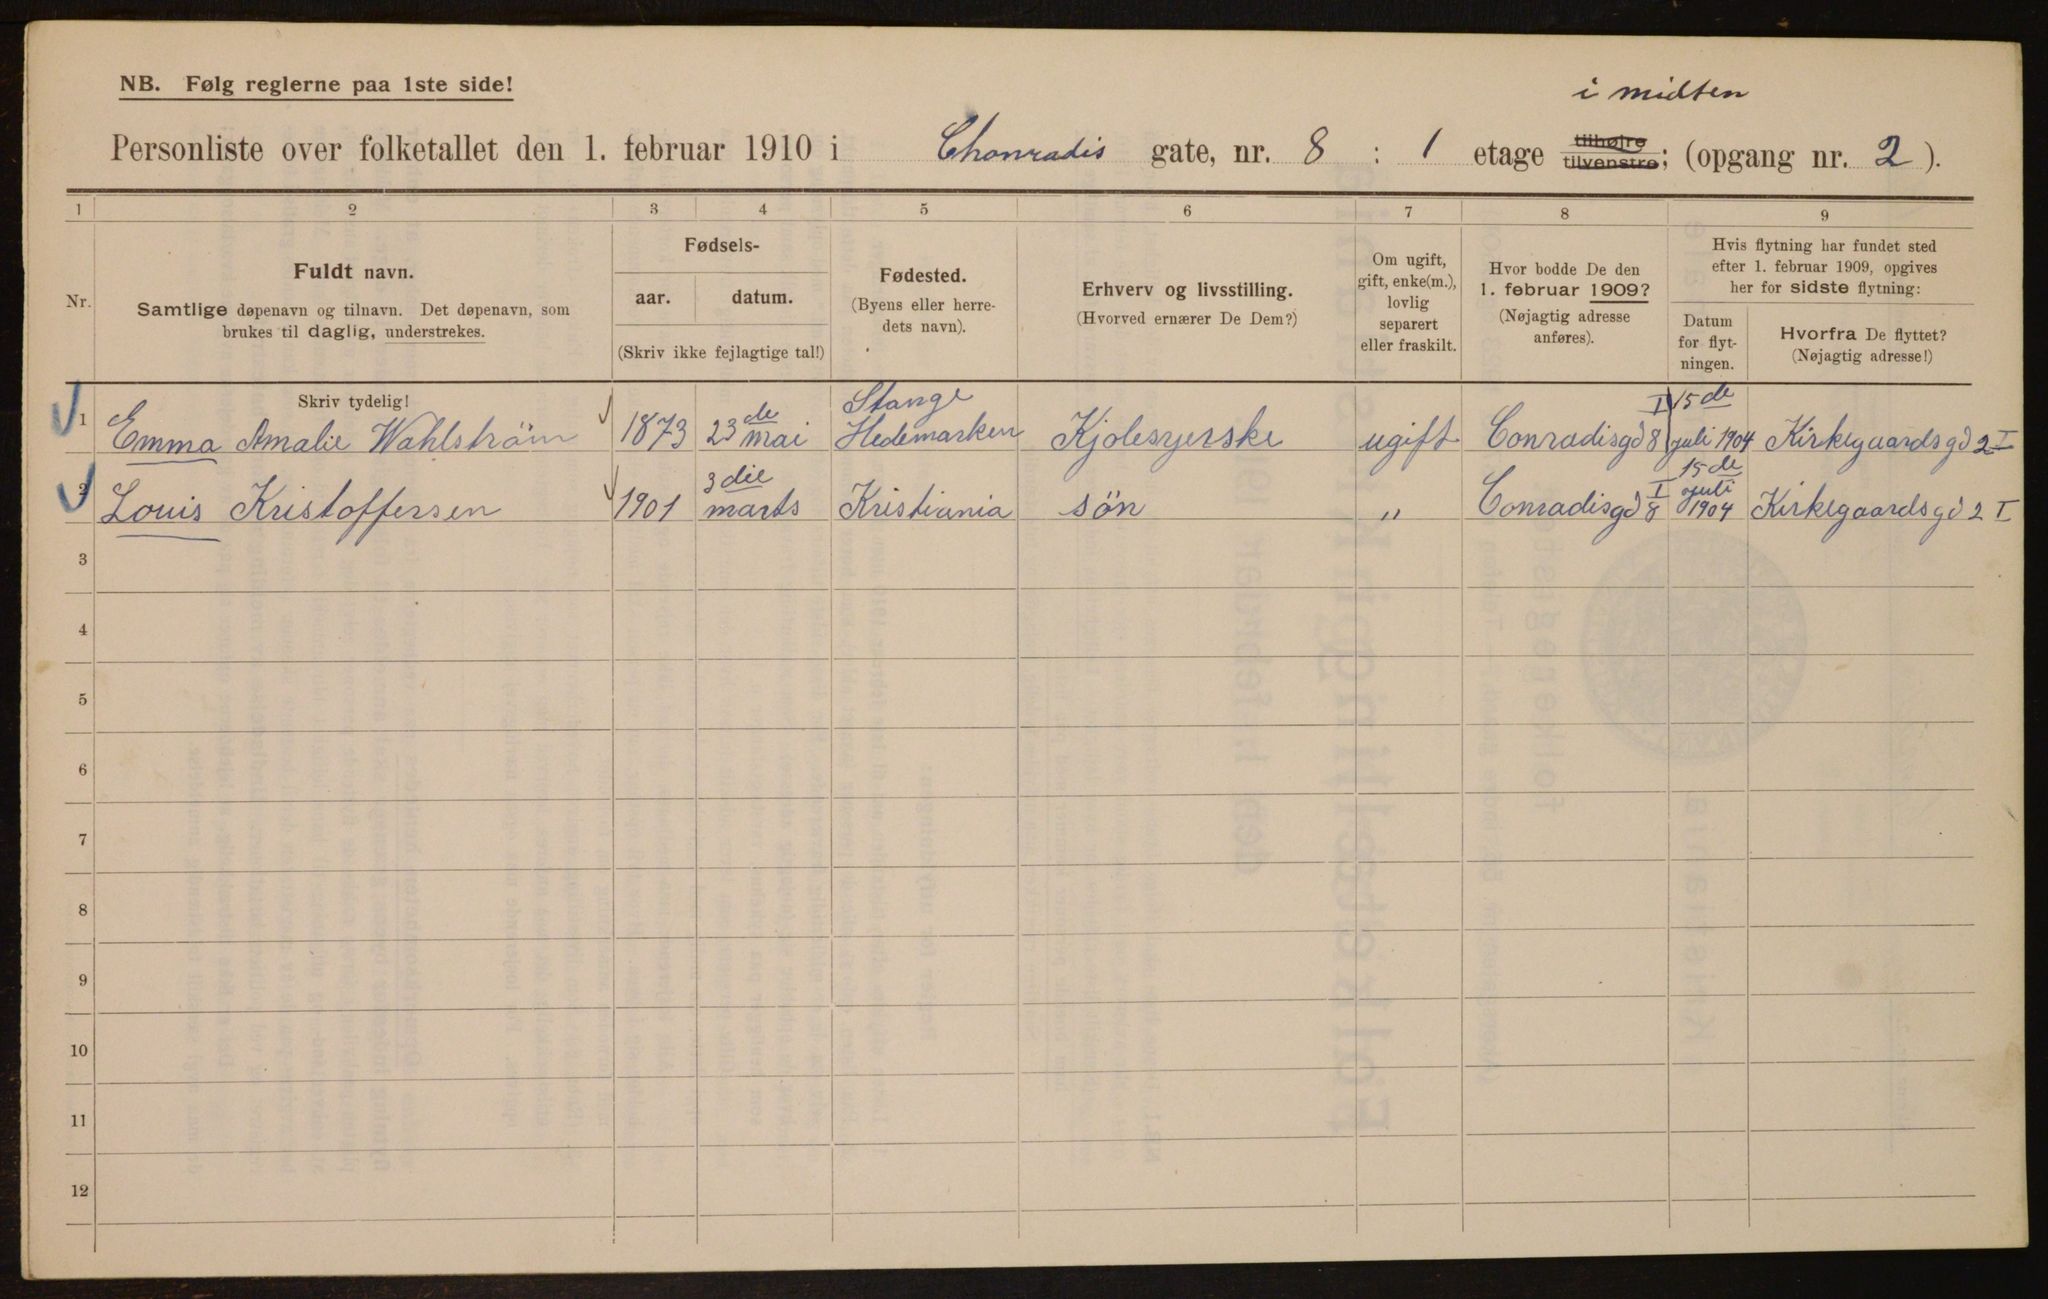 NB. Følg reglerne paa 1ste side!
i midten
Personliste over folketallet den 1. februar 1910 i Chonradis gate, nr. 8 : 1 etage tilhøjre tilvenstre; (opgang nr. 2).
1 2 3 4 5 6 7 8 9
Nr.
Fuldt navn.
Samtlige døpenavn og tilnavn. Det døpenavn, som
brukes til daglig, understrekes.
Fødsels-
aar. datum.
(Skriv ikke fejlagtige tal!)
Fødested.
(Byens eller herre-
dets navn).
Erhverv og livsstilling.
(Hvorved ernærer De Dem?)
Om ugift,
gift, enke(m.),
lovlig
separert
eller fraskilt.
Hvor bodde De den
1. februar 1909?
(Nøjagtig adresse
anføres).
Hvis flytning har fundet sted
efter 1. februar 1909, opgives
her for sidste flytning:
Datum
for flyt-
ningen.
Hvorfra De flyttet?
(Nøjagtig adresse!)
Skriv tydelig!
1 Emma Amalie Wahlström 1873 23de mai Stange Hedemarken Kjolesyerske ugift Conradisgd 8 I 15de juli 1904 Kirkegaardsgd 2 I
2 Louis Kristoffersen 1901 3die marts Kristiania sön " Conradisgd 8 I 15de juli 1904 Kirkegaardsgd 2 I
3
4
5
6
7
8
9
10
11
12